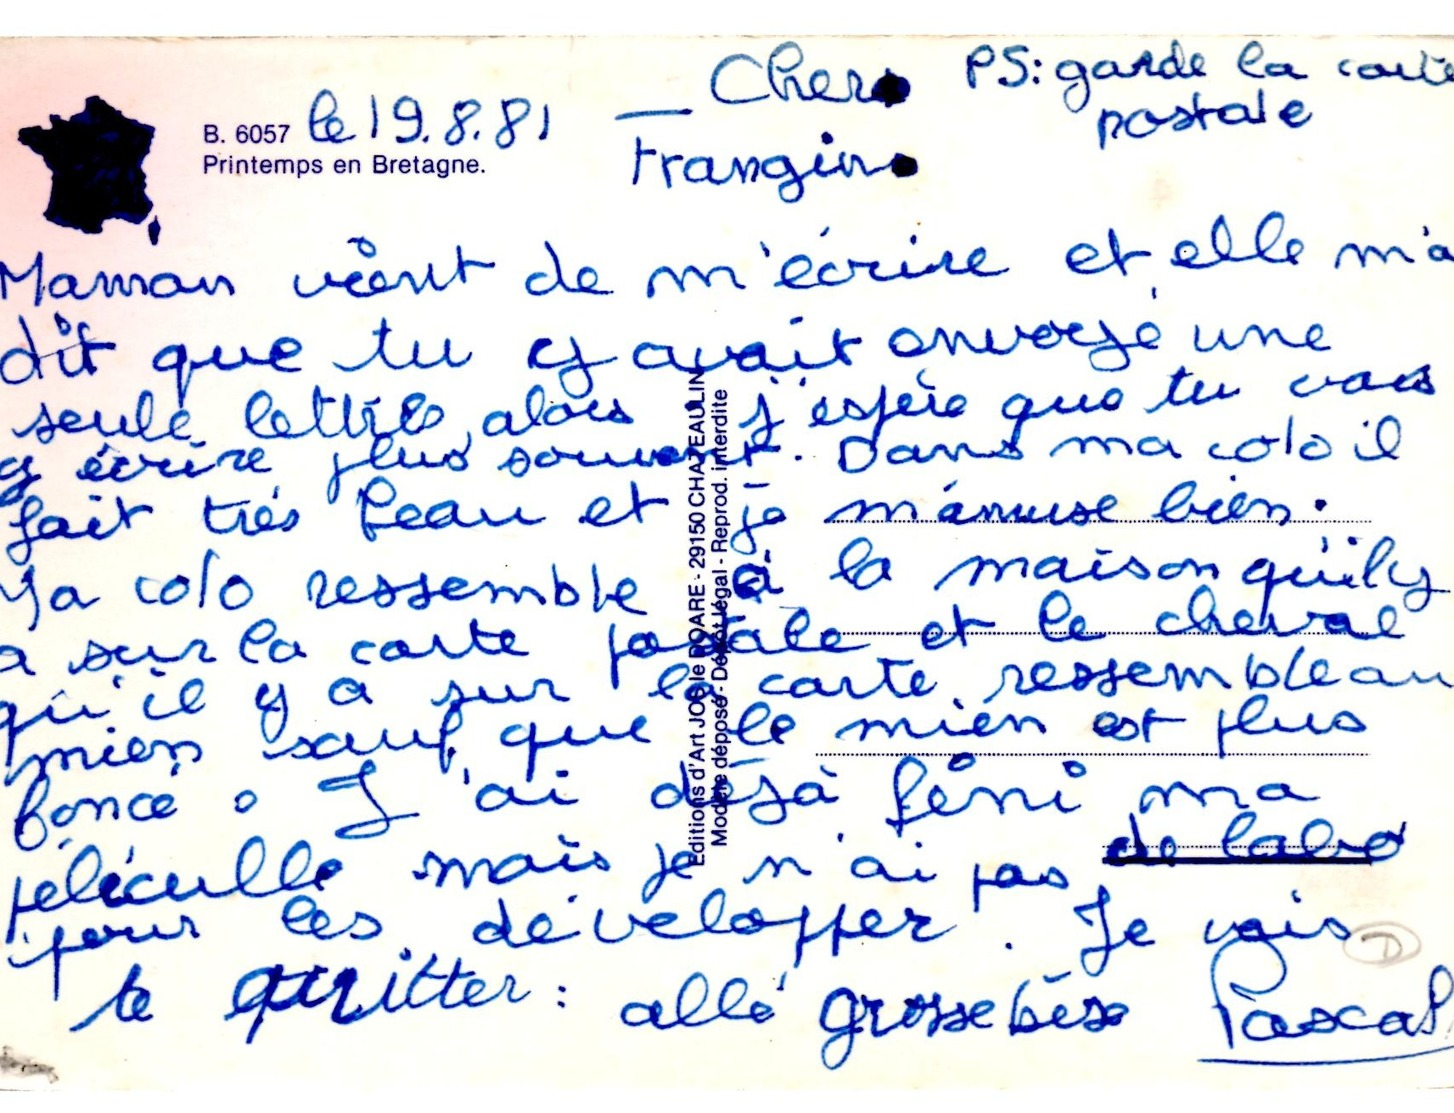 B. 6057 le 19.8.81
Printemps en Bretagne.
Cher
Frangin
PS: garde la carte
postale
Maman vient de m'écrire et elle m'a
dit que tu y avait envoyé une
seule lettre, alors j'espère que tu vas
y écrire plus souvent. Dans ma colo il
fait très beau et je m'amuse bien.
La colo ressemble à la maison qu'il y
a sur la carte postale et le cheval
qu'il y a sur la carte ressemble au
mien sauf que le mien est plus
foncé. J'ai déjà fini ma
péliculle mais je n'ai pas de labo
pour les développer. Je vais
te quitter : allé grosse bise Pascal
Editions d'Art JOS le DOARE - 29150 CHATEAULIN
Modèle déposé - Dépôt légal - Reprod. interdite